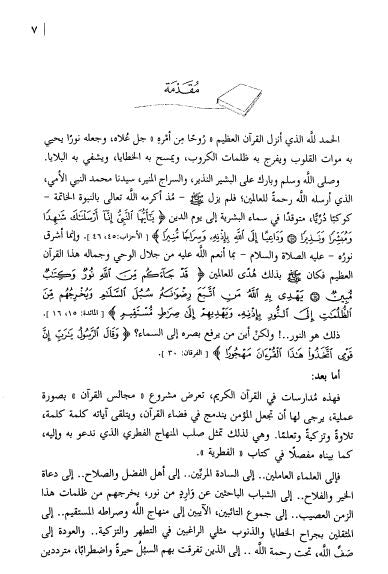 ٧
مُقَدِّمَة
الحمد للَّه الذي أنزل القرآن العظيم « رُوحًا مِن أمْرِهِ » جل عُلاه، وجعله نورًا يحيي
به موات القلوب ويفرج به ظلمات الكروب، ويمسح به الخطايا، ويشفي به البلايا.
وصلى اللَّه وسلم وبارك على البشير النذير، والسراج المنير، سيدنا محمد النبي الأمي،
الذي أرسله اللَّه رحمةً للعالمين؛ فلم يزل ﷺ – مُذ أكرمه اللَّه تعالى بالنبوة الخاتمة –
كوكبًا دُرِّيًّا، متوقدًا في سماء البشرية إلى يوم الدين ﴿ يَٰٓأَيُّهَا ٱلنَّبِيُّ إِنَّآ أَرْسَلْنَٰكَ شَٰهِدًا
وَمُبَشِّرًا وَنَذِيرًا ۝ وَدَاعِيًا إِلَى ٱللَّهِ بِإِذْنِهِۦ وَسِرَاجًا مُّنِيرًا ﴾ [الأحزاب: ٤٥، ٤٦]. وإنما أشرق
نورُه – عليه الصلاة والسلام – بما أنعم اللَّه عليه من جلال الوحي وجماله هذا القرآن
العظيم فكان ﷺ بذلك هُدًى للعالمين ﴿ قَدْ جَآءَكُم مِّنَ ٱللَّهِ نُورٌ وَكِتَٰبٌ
مُّبِينٌ ۝ يَهْدِى بِهِ ٱللَّهُ مَنِ ٱتَّبَعَ رِضْوَٰنَهُۥ سُبُلَ ٱلسَّلَٰمِ وَيُخْرِجُهُم مِّنَ
ٱلظُّلُمَٰتِ إِلَى ٱلنُّورِ بِإِذْنِهِۦ وَيَهْدِيهِمْ إِلَىٰ صِرَٰطٍ مُّسْتَقِيمٍ ﴾ [المائدة: ١٥، ١٦].
ذلك هو النور..! ولكنْ أين من يرفع بصره إلى السماء؟ ﴿ وَقَالَ ٱلرَّسُولُ يَٰرَبِّ إِنَّ
قَوْمِى ٱتَّخَذُوا۟ هَٰذَا ٱلْقُرْءَانَ مَهْجُورًا ﴾ [الفرقان: ٣٠].
أما بعد:
فهذه مُدارسات في القرآن الكريم، تعرض مشروع « مجالس القرآن » بصورة
عملية، يرجى لها أن تجعل المؤمن يندمج في فضاء القرآن، ويتلقى آياته كلمة كلمة،
تلاوةً وتزكيةً وتعلمًا. وهي لذلك تمثل صلب المنهاج الفطري الذي ندعو به وإليه،
كما بيناه مفصلًا في كتاب « الفطرية ».
فإلى العلماء العاملين.. إلى السادة المربِّين.. إلى أهل الفضل والصلاح.. إلى دعاة
الخير والفلاح.. إلى الشباب الباحثين عن وَارِدٍ من نور، يخرجهم من ظلمات هذا
الزمن العصيب.. إلى جموع التائبين، الآيبين إلى منهاج اللَّه وصراطه المستقيم.. إلى
المثقلين بجراح الخطايا والذنوب مثلي الراغبين في التطهر والتزكية.. والعودة إلى
صَفِّ اللَّه، تحت رحمة اللَّه .. إلى الذين تفرقت بهم السبُل حيرةً واضطرابًا، مترددين